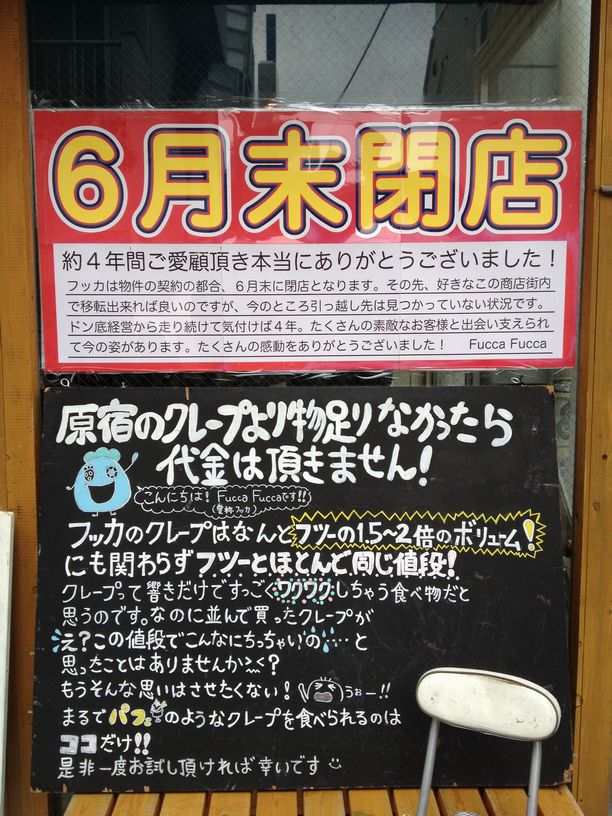 6月末閉店
約4年間ご愛顧頂き本当にありがとうございました！
フッカは物件の契約の都合、6月末に閉店となります。その先、好きなこの商店街内
で移転出来れば良いのですが、今のところ引っ越し先は見つかっていない状況です。
ドン底経営から走り続けて気付けば4年。たくさんの素敵なお客様と出会い支えられ
て今の姿があります。たくさんの感動をありがとうございました！ Fucca Fucca
原宿のクレープより物足りなかったら
代金は頂きません！
こんにちは！Fucca Fuccaです!!
(愛称フッカ)
フッカのクレープはなんとフツーの1.5〜2倍のボリューム！
にも関わらずフツーとほとんど同じ値段！
クレープって響きだけですっごくワクワクしちゃう食べ物だと
思うのです。なのに並んで買ったクレープが
え？この値段でこんなにちっちゃいの……と
思ったことはありませんか〜？
もうそんな思いはさせたくない！ うぉー!!
まるでパフェのようなクレープを食べられるのは
ココだけ!!
是非一度お試し頂ければ幸いです